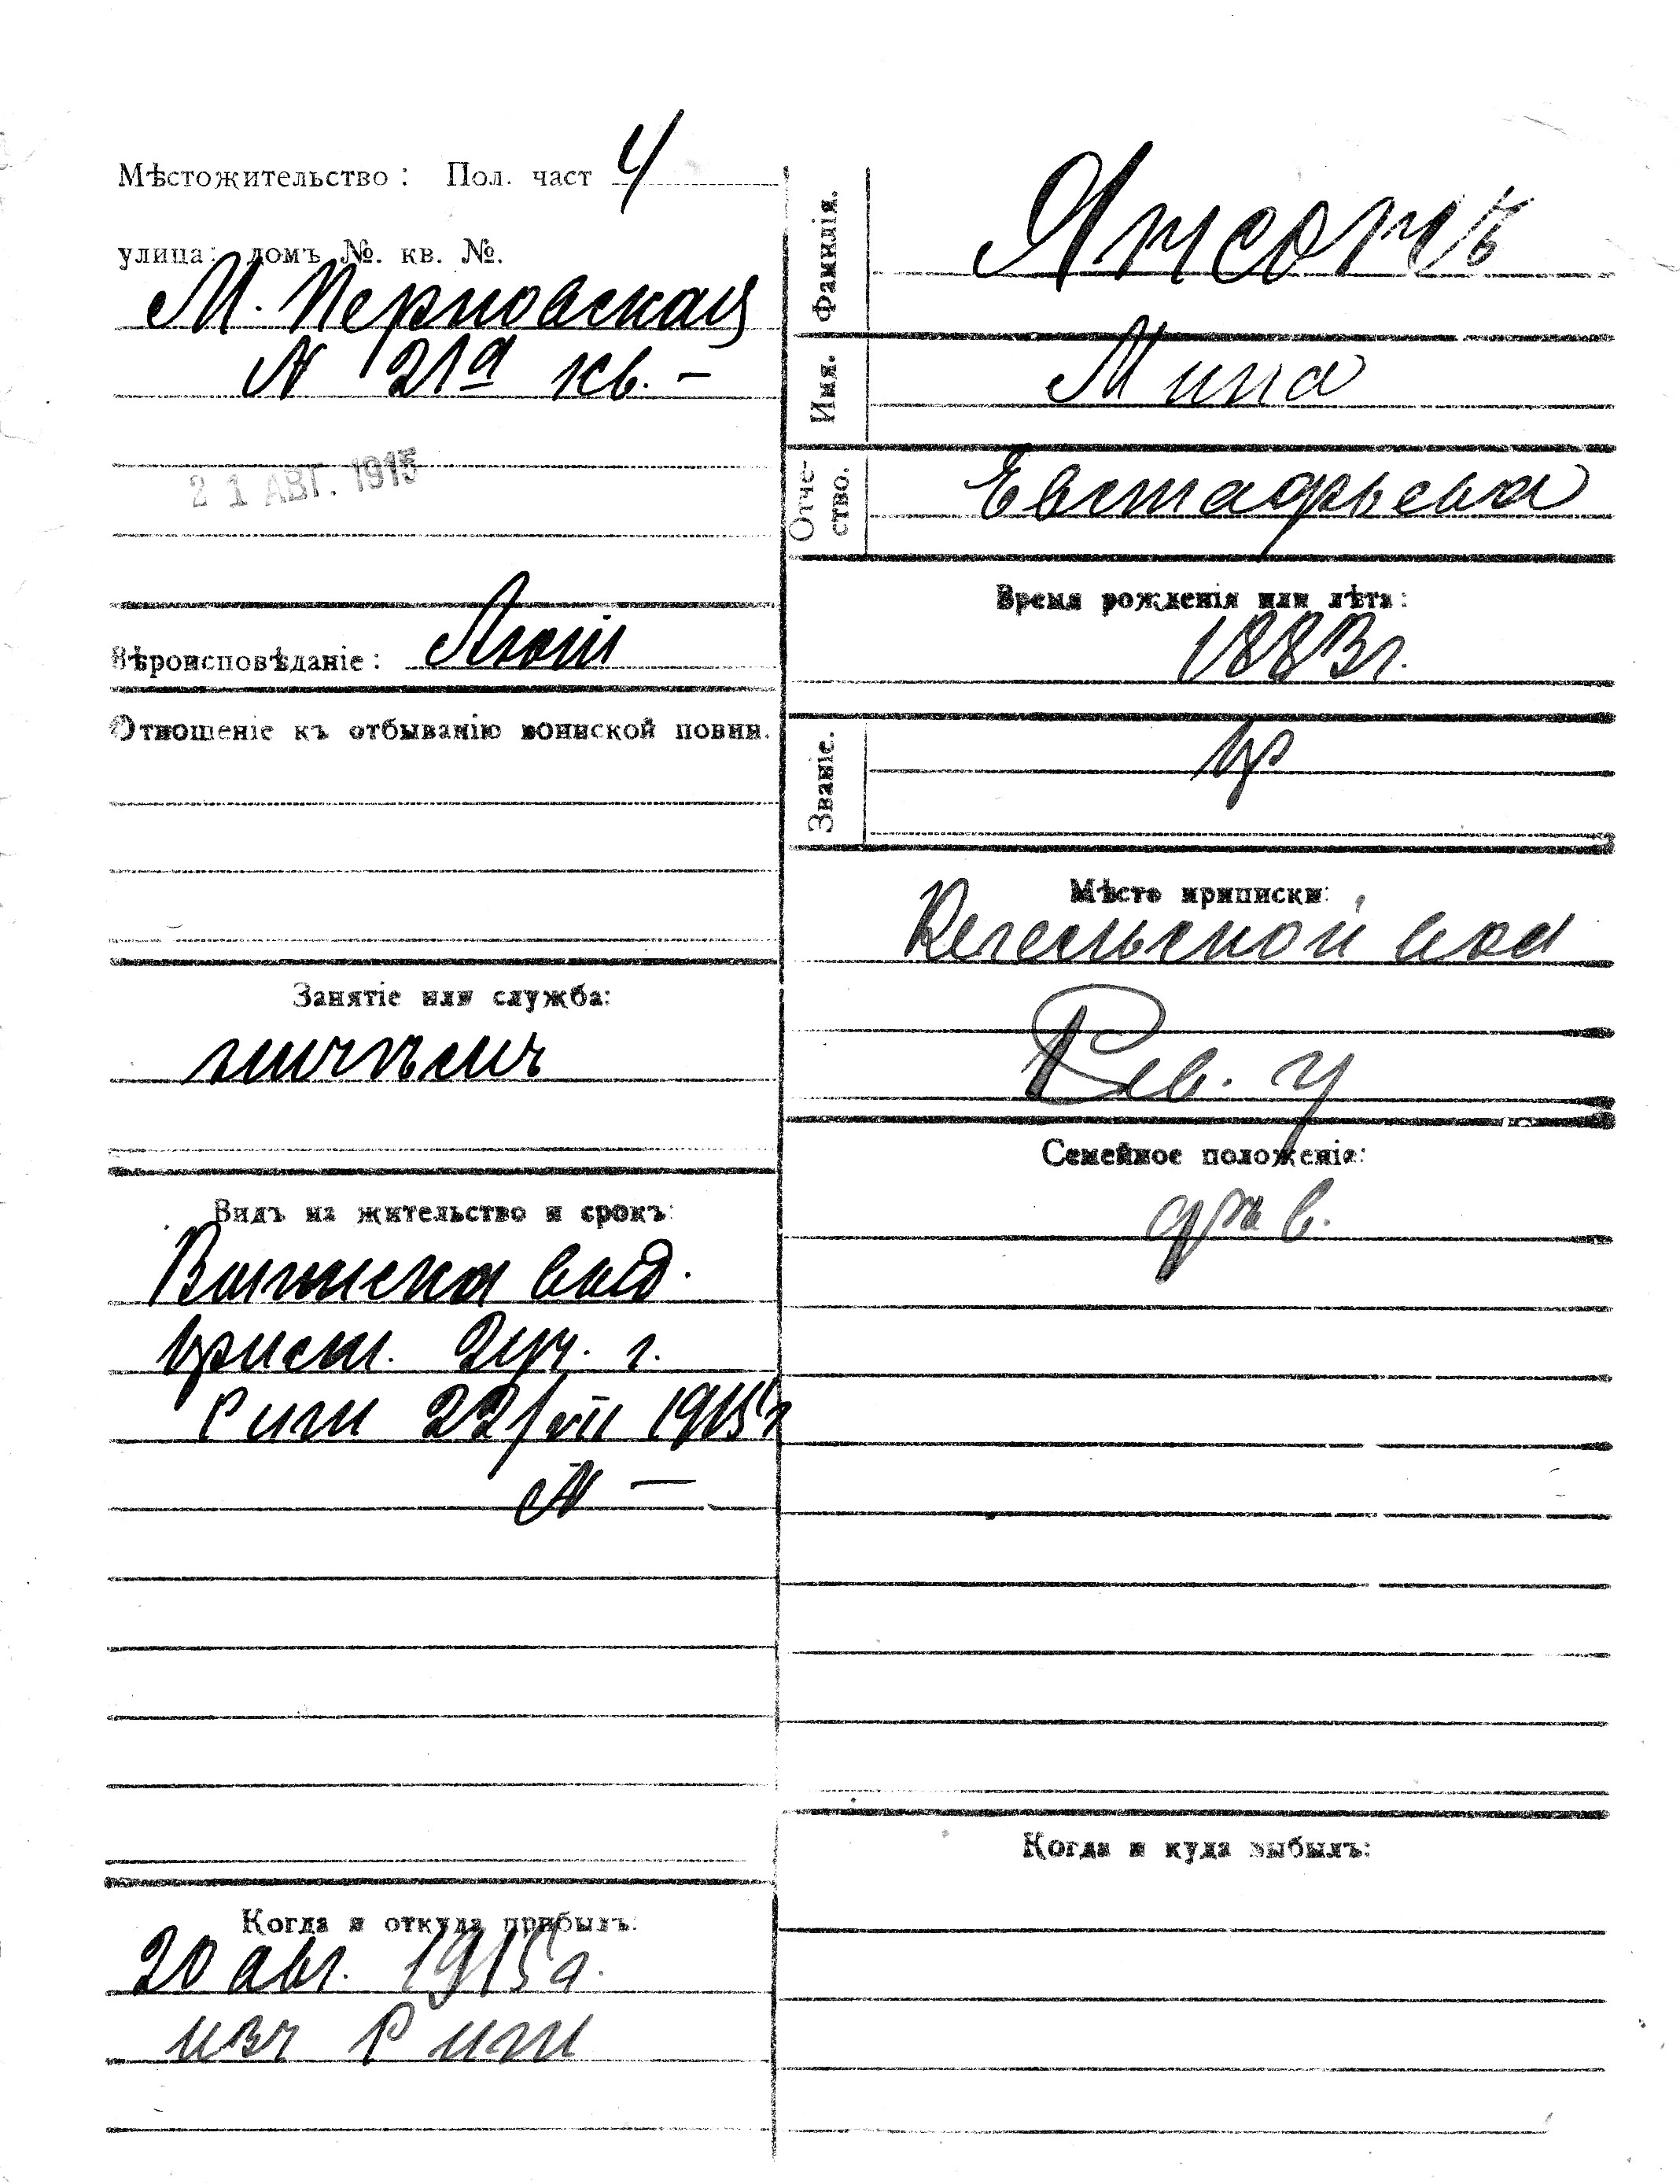 Мѣстожительство: Пол. част 4
улица: домъ №. кв. №.
М. Перновская
N 21а кв. -
21 АВГ. 1915
Вѣроисповѣданіе: Лют
Отношеніе къ отбыванію воинской повин.
Занятіе или служба:
Видъ на жительство и срокъ:
Выписка выд.
прист. 2 уч. г.
Риги 22/VII 1915 г
N —
Когда и откуда прибылъ:
20 авг. 1915 г.
изъ Риги
Фамилія. Янсонъ
Имя. Мина
Отче-
ство. Евстафьева
Время рожденія или лѣта:
1883 г.
Званіе. кр
Мѣсто приписки:
Кегельской вол
Рев. у
Семейное положеніе:
дѣв.
Когда и куда выбылъ: